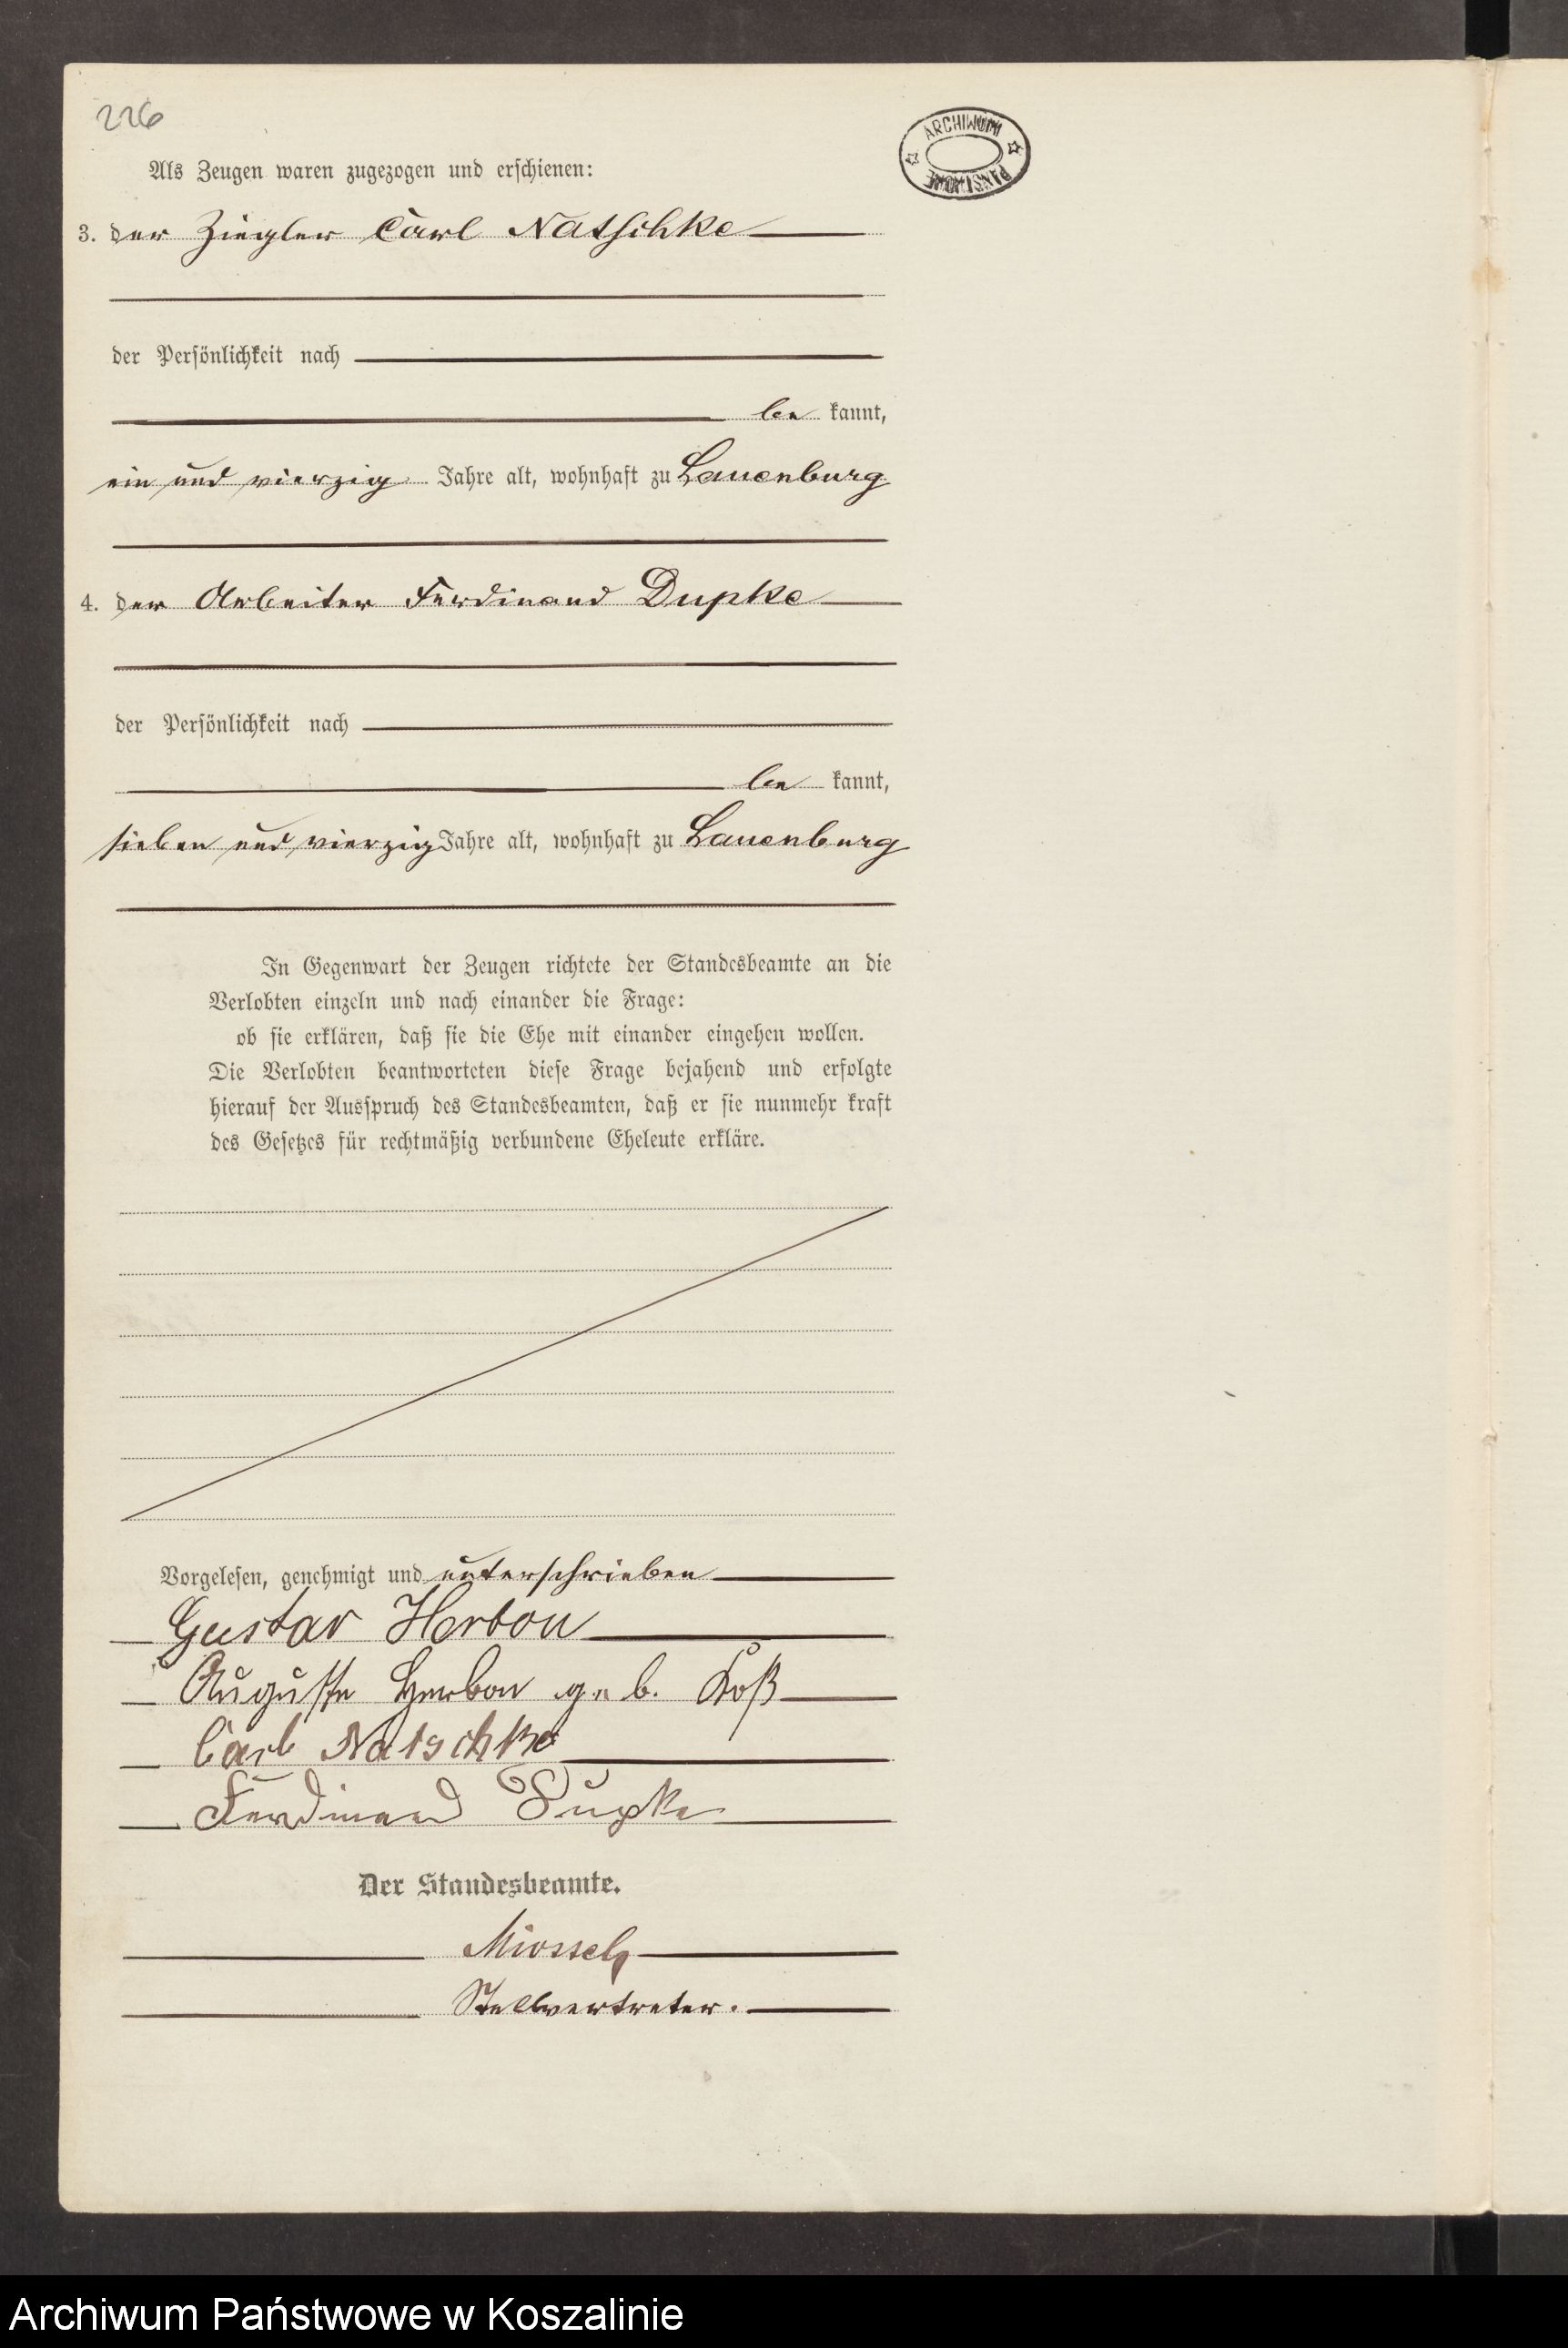 226
ARCHIWUM
PAŃSTWOWE
Als Zeugen waren zugezogen und erschienen:
3. der Ziegler Carl Natschke
der Persönlichkeit nach
be kannt,
ein und vierzig Jahre alt, wohnhaft zu Lauenburg
4. der Arbeiter Ferdinand Dupke
der Persönlichkeit nach
be kannt,
sieben und vierzig Jahre alt, wohnhaft zu Lauenburg
In Gegenwart der Zeugen richtete der Standesbeamte an die
Verlobten einzeln und nach einander die Frage:
ob sie erklären, daß sie die Ehe mit einander eingehen wollen.
Die Verlobten beantworteten diese Frage bejahend und erfolgte
hierauf der Ausspruch des Standesbeamten, daß er sie nunmehr kraft
des Gesetzes für rechtmäßig verbundene Eheleute erkläre.
Vorgelesen, genehmigt und unterschrieben
Gustav Herbon
Auguste Herbon geb. Koß
Carl Natschke
Ferdinand Dupke
Der Standesbeamte.
Stellvertreter.
Archiwum Państwowe w Koszalinie